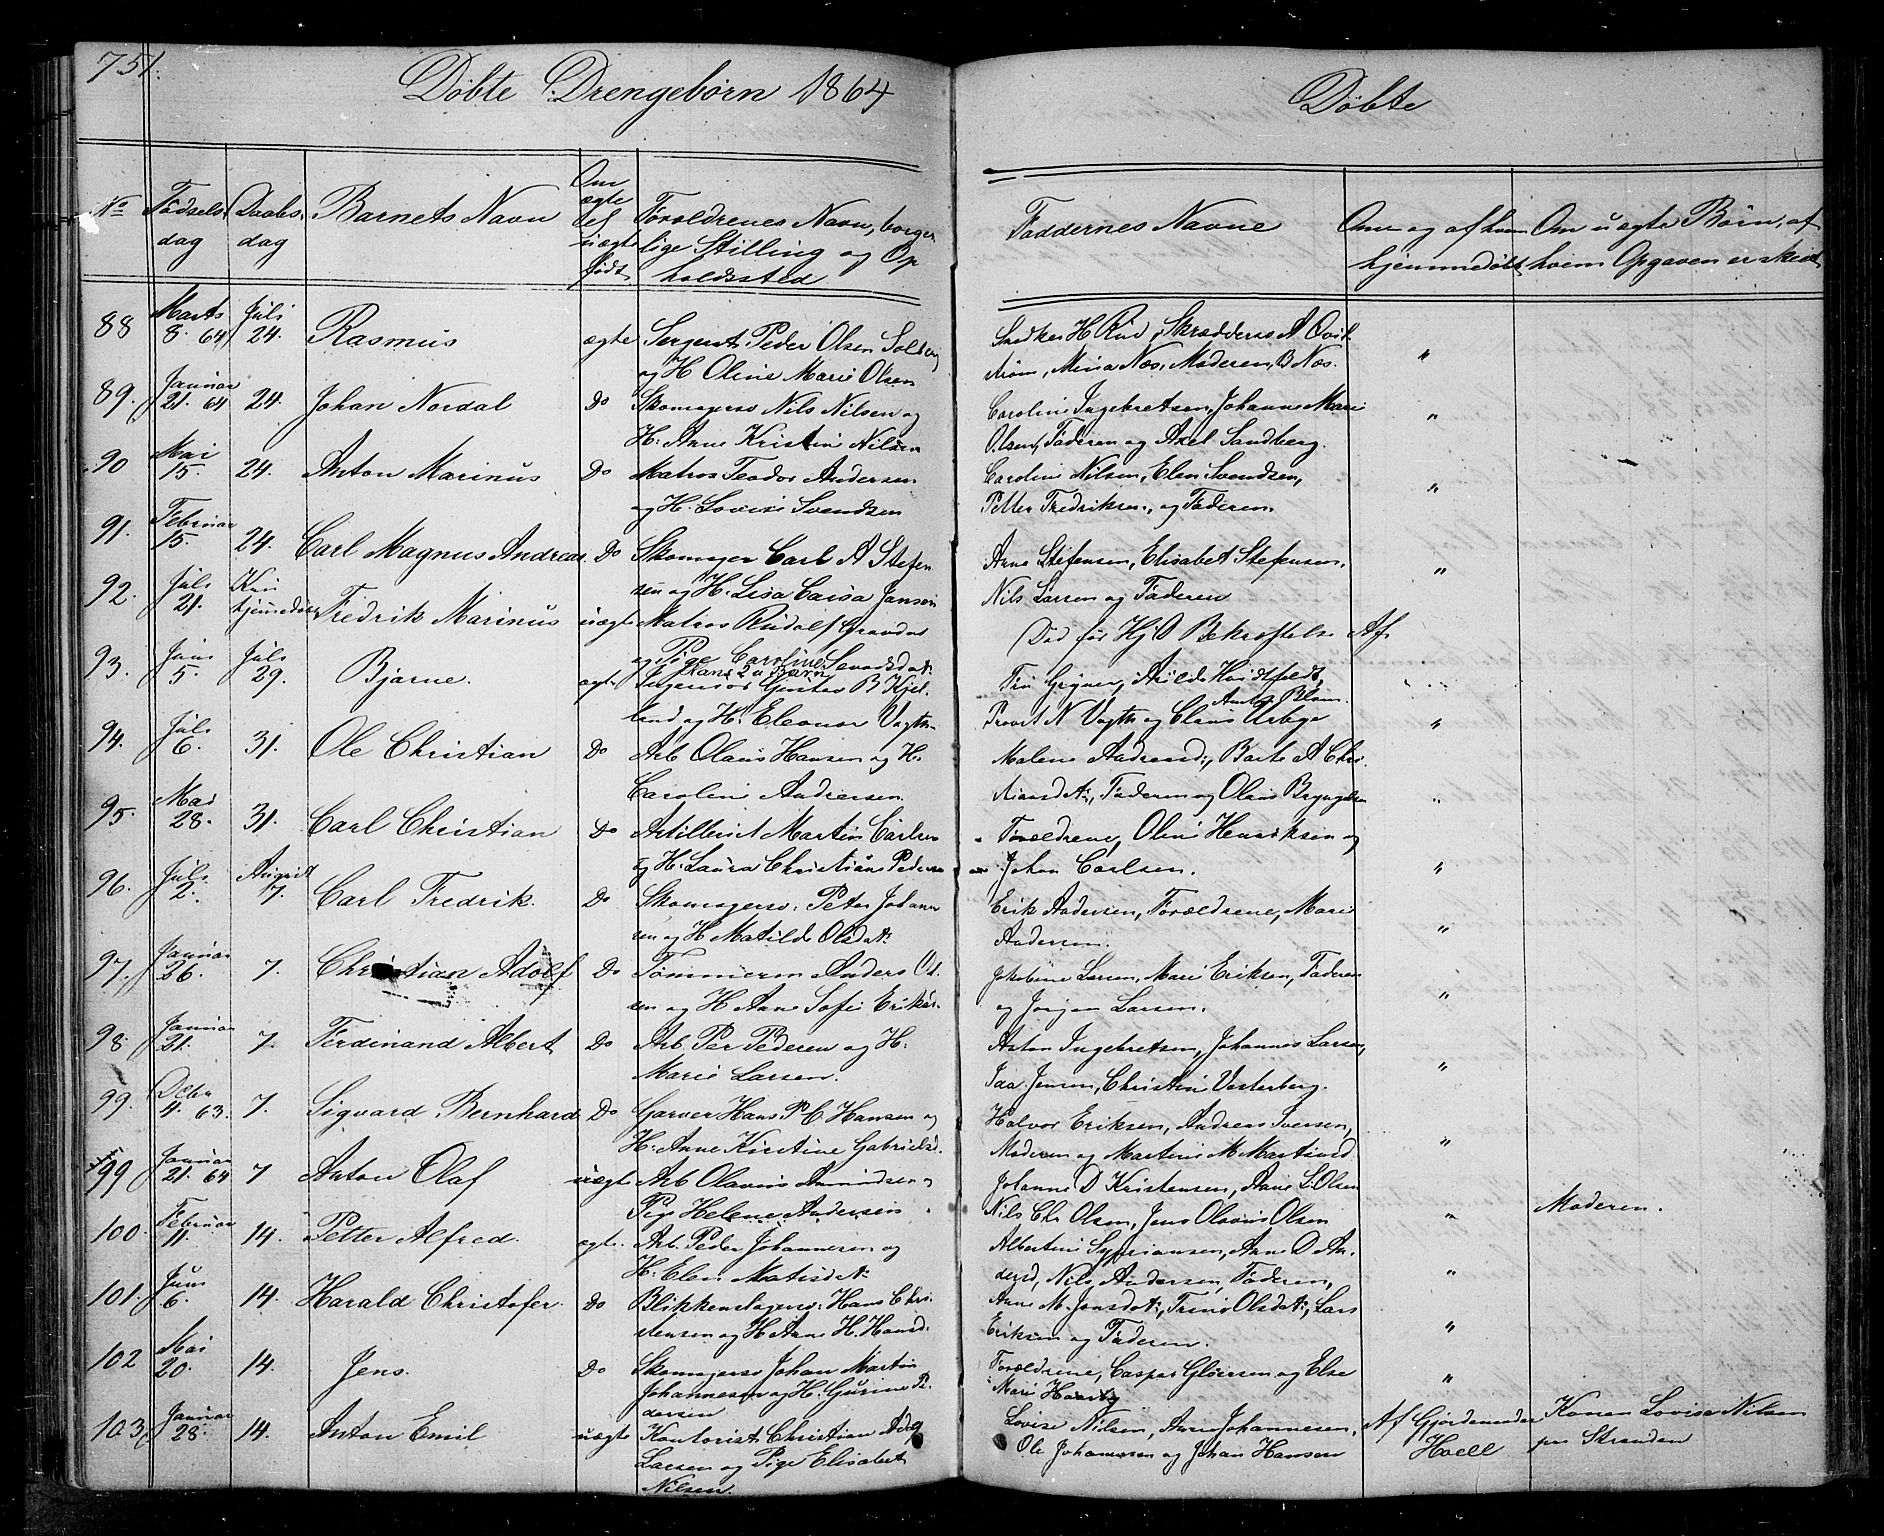 751.
Döbte Drengebörn 1864
Döbte
No
Födsels dag
Daabs dag
Barnets Navn
Om ægte el uægte födt
Forældrenes Navn, borger
lige Stilling og Op
holdssted
Faddernes Navne
Om og af hvem
hjemmedöbt
Om uægte Börn, af
hvem Opgaven er skeet
88 Marts 8. 64 Juli 24. Rasmus ægte Sergent Peder Olsen Solberg
og H Oline Marie Olsen
Snedker H Rud, Skrædders A Qvil
ström, Mina Næs, Moderen, B Næs. "
89. Januar 21. 64 24. Johan Nordal Do Skomagersv Nils Nilsen og
H: Anne Kristin Nilsen
Caroline Ingebretsen, Johanne Marie
Olsen, Faderen og Axel Sandberg. "
90 Mai 15. 24. Anton Marinus Do Matros Teodor Andersen
og H. Lovise Svendsen
Caroline Nilsen, Elen Svendsen,
Petter Fredriksen, og Faderen. "
91. Februar 15. 24. Carl Magnus Andreas. Do Skomager Carl A Stefen
sen og H. Lisa Caisa Janson
Anne Stefensen, Elisabet Stefensen,
Nils Larsen og Faderen "
92. Juli 21. Kun hjemmedöbt Fredrik Marinus uægte Matros Rudolf
og Pige Caroline
Död för Hj D Bekræftelse Af
93. Juni 5. Juli 29. Bjarne. ægte Ingeniör Gustav B Kjel
land og H. Eleonor Vogth
Fru Grÿner, Alilde Huidtfeldt,
Provst N Vogth og Claus Urbye
94. Juli 6. 31. Ole Christian Do Arb Olaus Hansen og H.
Caroline Andersen.
Malene Andersd:, Barte A Chri
stiansdt:, Faderen og Olaus Bryngelsen "
95. Mai 28. 31. Carl Christian Do Artillerist Martin Carlsen
og H. Laura Christiane Pedersen
Forældrene, Oline Henriksen og
Johan Carlsen. "
96. Juli 2. August 7. Carl Fredrik. Do Skomagersv: Peter Johann
sen og H Matilde Olsdt:
Erik Andersen, Forældrene, Marie
Andersen. "
97. Januar 26. 7. Christian Adolf Do Tömmerm Anders Ol
sen og H Anne Sofie Eriksd.
Jakobine Larsen, Marie Eriksen, Faderen
og Jörgen Larsen. "
98. Januar 21. 7. Ferdinand Albert Do Arb. Per Pedersen og H:
Marie Larsen.
Anton Ingebretsen, Johannes Larsen,
Ida Jensen, Christine Vesterberg. "
99. Decbr 4. 63. 7. Sigvard Bernhard Do Garver Hans P C Hansen og
H: Anne Kirstine Gabrielsd.
Halvor Eriksen, Andreas Iversen,
Moderen og Martine M Martinsd "
99 Januar 21. 64 7 Anton Olaf uægte Arb Olavus Amundsen og
Pige Helene Andersen
Johanne D Kristensen, Anne L Olsen
Nils Chr Olsen, Jens Olavus Olsen " Moderen.
100. Februar 11. 14. Petter Alfred. ægte. Arb. Peder Johannesen og
H. Elen Matisdt:
Albertine Sypriansen, Anne D An.
dersd, Nils Andersen, Faderen, "
101. Juni 6. 14. Harald Christofer. Do Blikkenslagersv: Hans Chri
stensen og H Anne H. Hansd.
Anne M. Jonsdt:, Trine Olsdt:, Lars
Eriksen og Faderen. "
102 Mai 20. 14. Jens. Do Skomagersv Johan Martin
Johannesen og H. Gurine Pe
dersen
Forældrene, Caspar Glöersen og Else
Marie "
103, Januar 28. 14. Anton Emil uægte Kontorist Christian
Larsen og Pige Elisabet
Nilsen.
Lovise Nilsen, Anne Johannesen,
Ole Johannesen og Johan Hansen
Af Gjordemoder
Hoell
Konen Lovise Nilsen
paa Stranden